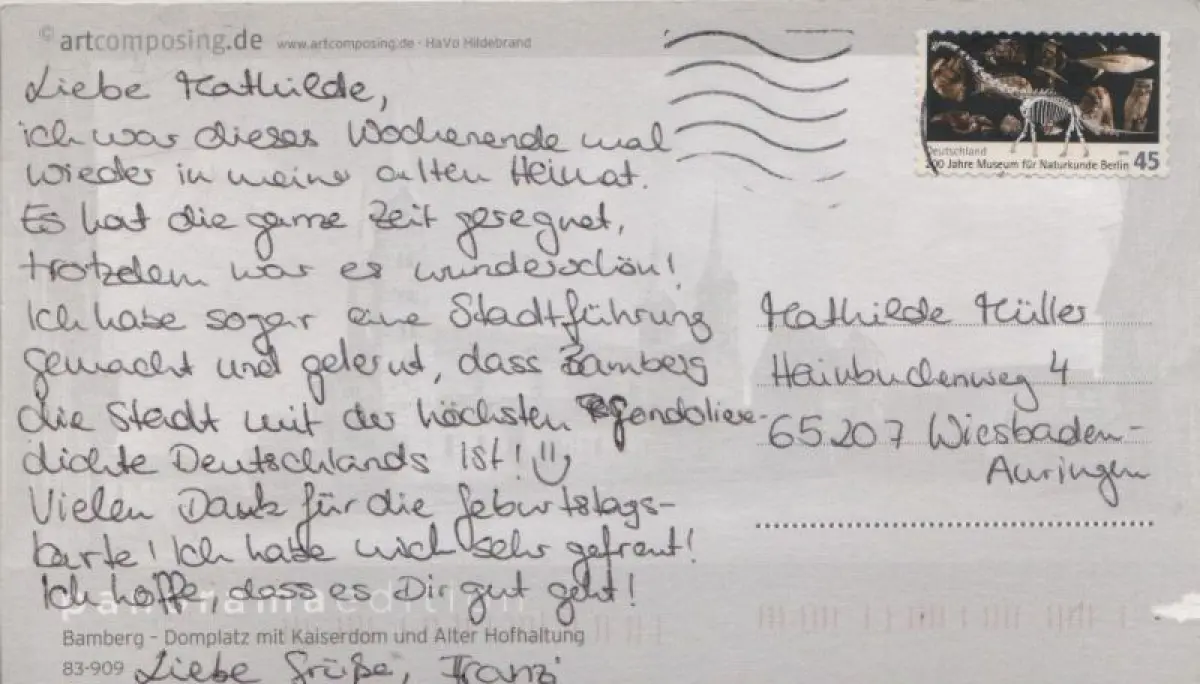 © artcomposing.de www.artcomposing.de · HaVo Hildebrand
Liebe Mathilde,
ich war dieses Wochenende mal
wieder in meiner alten Heimat.
Es hat die ganze Zeit geregnet,
trotzdem war es wunderschön!
Ich habe sogar eine Stadtführung
gemacht und gelernt, dass Bamberg
die Stadt mit der höchsten Gondoliere-
dichte Deutschlands ist!
Vielen Dank für die Geburtstags-
karte! Ich habe mich sehr gefreut!
Ich hoffe, dass es Dir gut geht!
panorama edition
Bamberg – Domplatz mit Kaiserdom und Alter Hofhaltung
83-909
Liebe Grüße, Franzi
Deutschland
200 Jahre Museum für Naturkunde Berlin 45
Mathilde Müller
Hainbuchenweg 4
65207 Wiesbaden-
Auringen